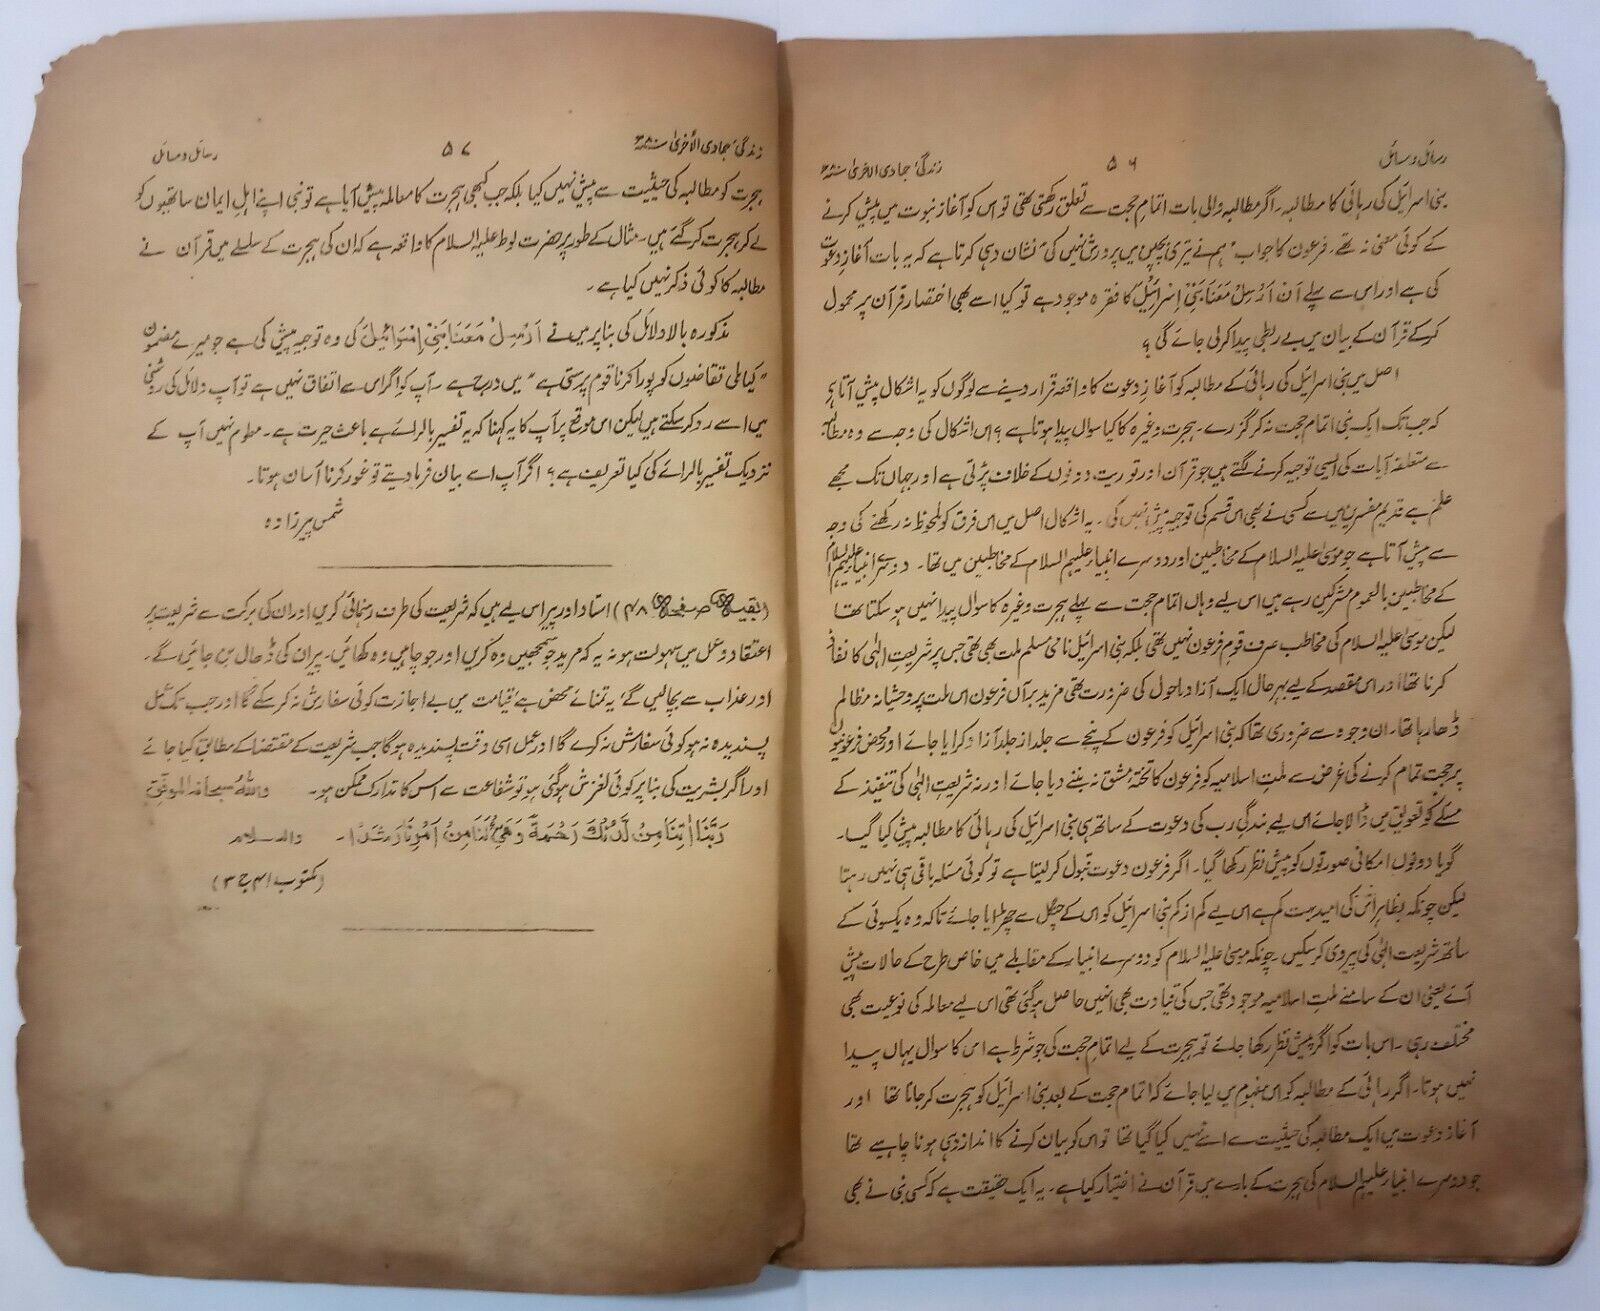 رسائل و مسائل
۵۶
زندگی، جمادی الاخریٰ سنہ ۸۰ھ
بنی اسرائیل کی رہائی کا مطالبہ۔ اگر مطالبہ والی بات اتمام حجت سے تعلق رکھتی تھی تو اس کو آغاز نبوت میں پیش کرنے
کے کوئی معنی نہ تھے۔ فرعون کا جواب "ہم نے تیری بچپن میں پرورش نہیں کی" نشان دہی کرتا ہے کہ یہ بات آغازِ دعوت
کی ہے اور اس سے پہلے اَنْ اَرْسِلْ مَعَنَا بَنِیْ اِسْرَائِیْلَ کا فقرہ موجود ہے تو کیا اسے بھی اختصار قرآن پر محمول
کرکے قرآن کے بیان میں بے ربطی پیدا کرلی جائے گی؟
اصل میں بنی اسرائیل کی رہائی کے مطالبہ کو آغازِ دعوت کا واقعہ قرار دینے سے لوگوں کو یہ اشکال پیش آتا ہے
کہ جب تک ایک نبی اتمام حجت نہ کر گزرے۔ ہجرت وغیرہ کا کیا سوال پیدا ہوتا ہے؟ اس اشکال کی وجہ سے وہ مطالبہ
سے متعلقہ آیات کی ایسی توجیہ کرنے لگتے ہیں جو قرآن اور توریت دونوں کے خلاف پڑتی ہے اور جہاں تک مجھے
علم ہے قدیم مفسرین میں سے کسی نے بھی اس قسم کی توجیہ پیش نہیں کی۔ یہ اشکال اصل میں اس فرق کو ملحوظ نہ رکھنے کی وجہ
سے پیش آتا ہے جو موسیٰ علیہ السلام کے مخاطبین اور دوسرے انبیاء علیہم السلام کے مخاطبین میں تھا۔ دوسرے انبیاء علیہم السلام
کے مخاطبین بالعموم مشرکین رہے ہیں اس لیے وہاں اتمام حجت سے پہلے ہجرت وغیرہ کا سوال پیدا نہیں ہوسکتا تھا
لیکن موسیٰ علیہ السلام کی مخاطب صرف قوم فرعون نہیں تھی بلکہ بنی اسرائیل نامی مسلم ملت بھی تھی جس پر شریعتِ الٰہی کا نفاذ
کرنا تھا اور اس مقصد کے لیے بہرحال ایک آزاد ماحول کی ضرورت تھی مزید برآں فرعون اس ملت پر وحشیانہ مظالم
ڈھا رہا تھا۔ ان وجوہ سے ضروری تھا کہ بنی اسرائیل کو فرعون کے پنجے سے جلد از جلد آزاد کرایا جائے اور محض فرعونیوں
پر حجت تمام کرنے کی غرض سے ملتِ اسلامیہ کو فرعون کا تختۂ مشق نہ بننے دیا جائے اور نہ شریعتِ الٰہی کی تنفیذ کے
مسئلے کو تعویق میں ڈالا جائے اس لیے بندگیِ رب کی دعوت کے ساتھ ہی بنی اسرائیل کی رہائی کا مطالبہ پیش کیا گیا۔
گویا دونوں امکانی صورتوں کو پیش نظر رکھا گیا۔ اگر فرعون دعوت قبول کرلیتا ہے تو کوئی مسئلہ باقی ہی نہیں رہتا
لیکن چونکہ بظاہر اس کی امید بہت کم ہے اس لیے کم از کم بنی اسرائیل کو اس کے چنگل سے چھڑایا جائے تاکہ وہ یکسوئی کے
ساتھ شریعتِ الٰہی کی پیروی کرسکیں۔ چونکہ موسیٰ علیہ السلام کو دوسرے انبیاء کے مقابلے میں خاص طرح کے حالات پیش
آئے یعنی ان کے سامنے ملتِ اسلامیہ موجود تھی جس کی قیادت بھی انہیں حاصل ہوگئی تھی اس لیے معاملہ کی نوعیت بھی
مختلف رہی۔ اس بات کو اگر پیش نظر رکھا جائے تو ہجرت کے لیے اتمام حجت کی جو شرط ہے اس کا سوال یہاں پیدا
نہیں ہوتا۔ اگر رہائی کے مطالبہ کو اس مفہوم میں لیا جائے کہ اتمام حجت کے بعد بنی اسرائیل کو ہجرت کرجانا تھا اور
آغاز دعوت میں ایک مطالبہ کی حیثیت سے اسے نہیں کیا گیا تھا تو اس کو بیان کرنے کا انداز وہی ہونا چاہیے تھا
جو دوسرے انبیاء علیہم السلام کی ہجرت کے بارے میں قرآن نے اختیار کیا ہے۔ یہ ایک حقیقت ہے کہ کسی نبی نے بھی
زندگی، جمادی الاخریٰ سنہ ۸۰ھ
۵۷
رسائل و مسائل
ہجرت کو مطالبہ کی حیثیت سے پیش نہیں کیا بلکہ جب کبھی ہجرت کا معاملہ پیش آیا ہے تو نبی اپنے اہلِ ایمان ساتھیوں کو
لے کر ہجرت کر گئے ہیں۔ مثال کے طور پر حضرت لوط علیہ السلام کا واقعہ ہے کہ ان کی ہجرت کے سلسلے میں قرآن نے
مطالبہ کا کوئی ذکر نہیں کیا ہے۔
مذکورہ بالا دلائل کی بنا پر میں نے اَرْسِلْ مَعَنَا بَنِیْ اِسْرَائِیْلَ کی وہ توجیہ پیش کی ہے جو میرے مضمون
"کیا ملی تقاضوں کو پورا کرنا قوم پرستی ہے" میں درج ہے۔ آپ کو اگر اس سے اتفاق نہیں ہے تو آپ دلائل کی روشنی
میں اسے رد کرسکتے ہیں لیکن اس موقع پر آپ کا یہ کہنا کہ یہ تفسیر بالرائے ہے باعث حیرت ہے۔ معلوم نہیں آپ کے
نزدیک تفسیر بالرائے کی کیا تعریف ہے؟ اگر آپ اسے بیان فرمادیتے تو غور کرنا آسان ہوتا۔
شمس پیرزادہ
(بقیہ صفحہ ۴۸) استاد اور پیر اس لیے ہیں کہ شریعت کی طرف رہنمائی کریں اور ان کی برکت سے شریعت پر
اعتقاد و عمل میں سہولت ہو نہ یہ کہ مرید جو سمجھیں وہ کریں اور جو چاہیں وہ کھائیں۔ پیر ان کی ڈھال بن جائیں گے۔
اور عذاب سے بچالیں گے، یہ تمنائے محض ہے، قیامت میں بے اجازت کوئی سفارش نہ کرسکے گا اور جب تک عمل
پسندیدہ نہ ہو کوئی سفارش نہ کرے گا اور عمل اسی وقت پسندیدہ ہوگا جب شریعت کے مقتضا کے مطابق کیا جائے
اور اگر بشریت کی بنا پر کوئی لغزش ہوگئی ہو تو شفاعت سے اس کا تدارک ممکن ہو۔ واللہ سبحانہ الموفق
رَبَّنَا اٰتِنَا مِنْ لَّدُنْكَ رَحْمَةً وَّهَيِّئْ لَنَا مِنْ اَمْرِنَا رَشَدًا۔ والسلام
(مکتوب ۴۱ ج ۳)